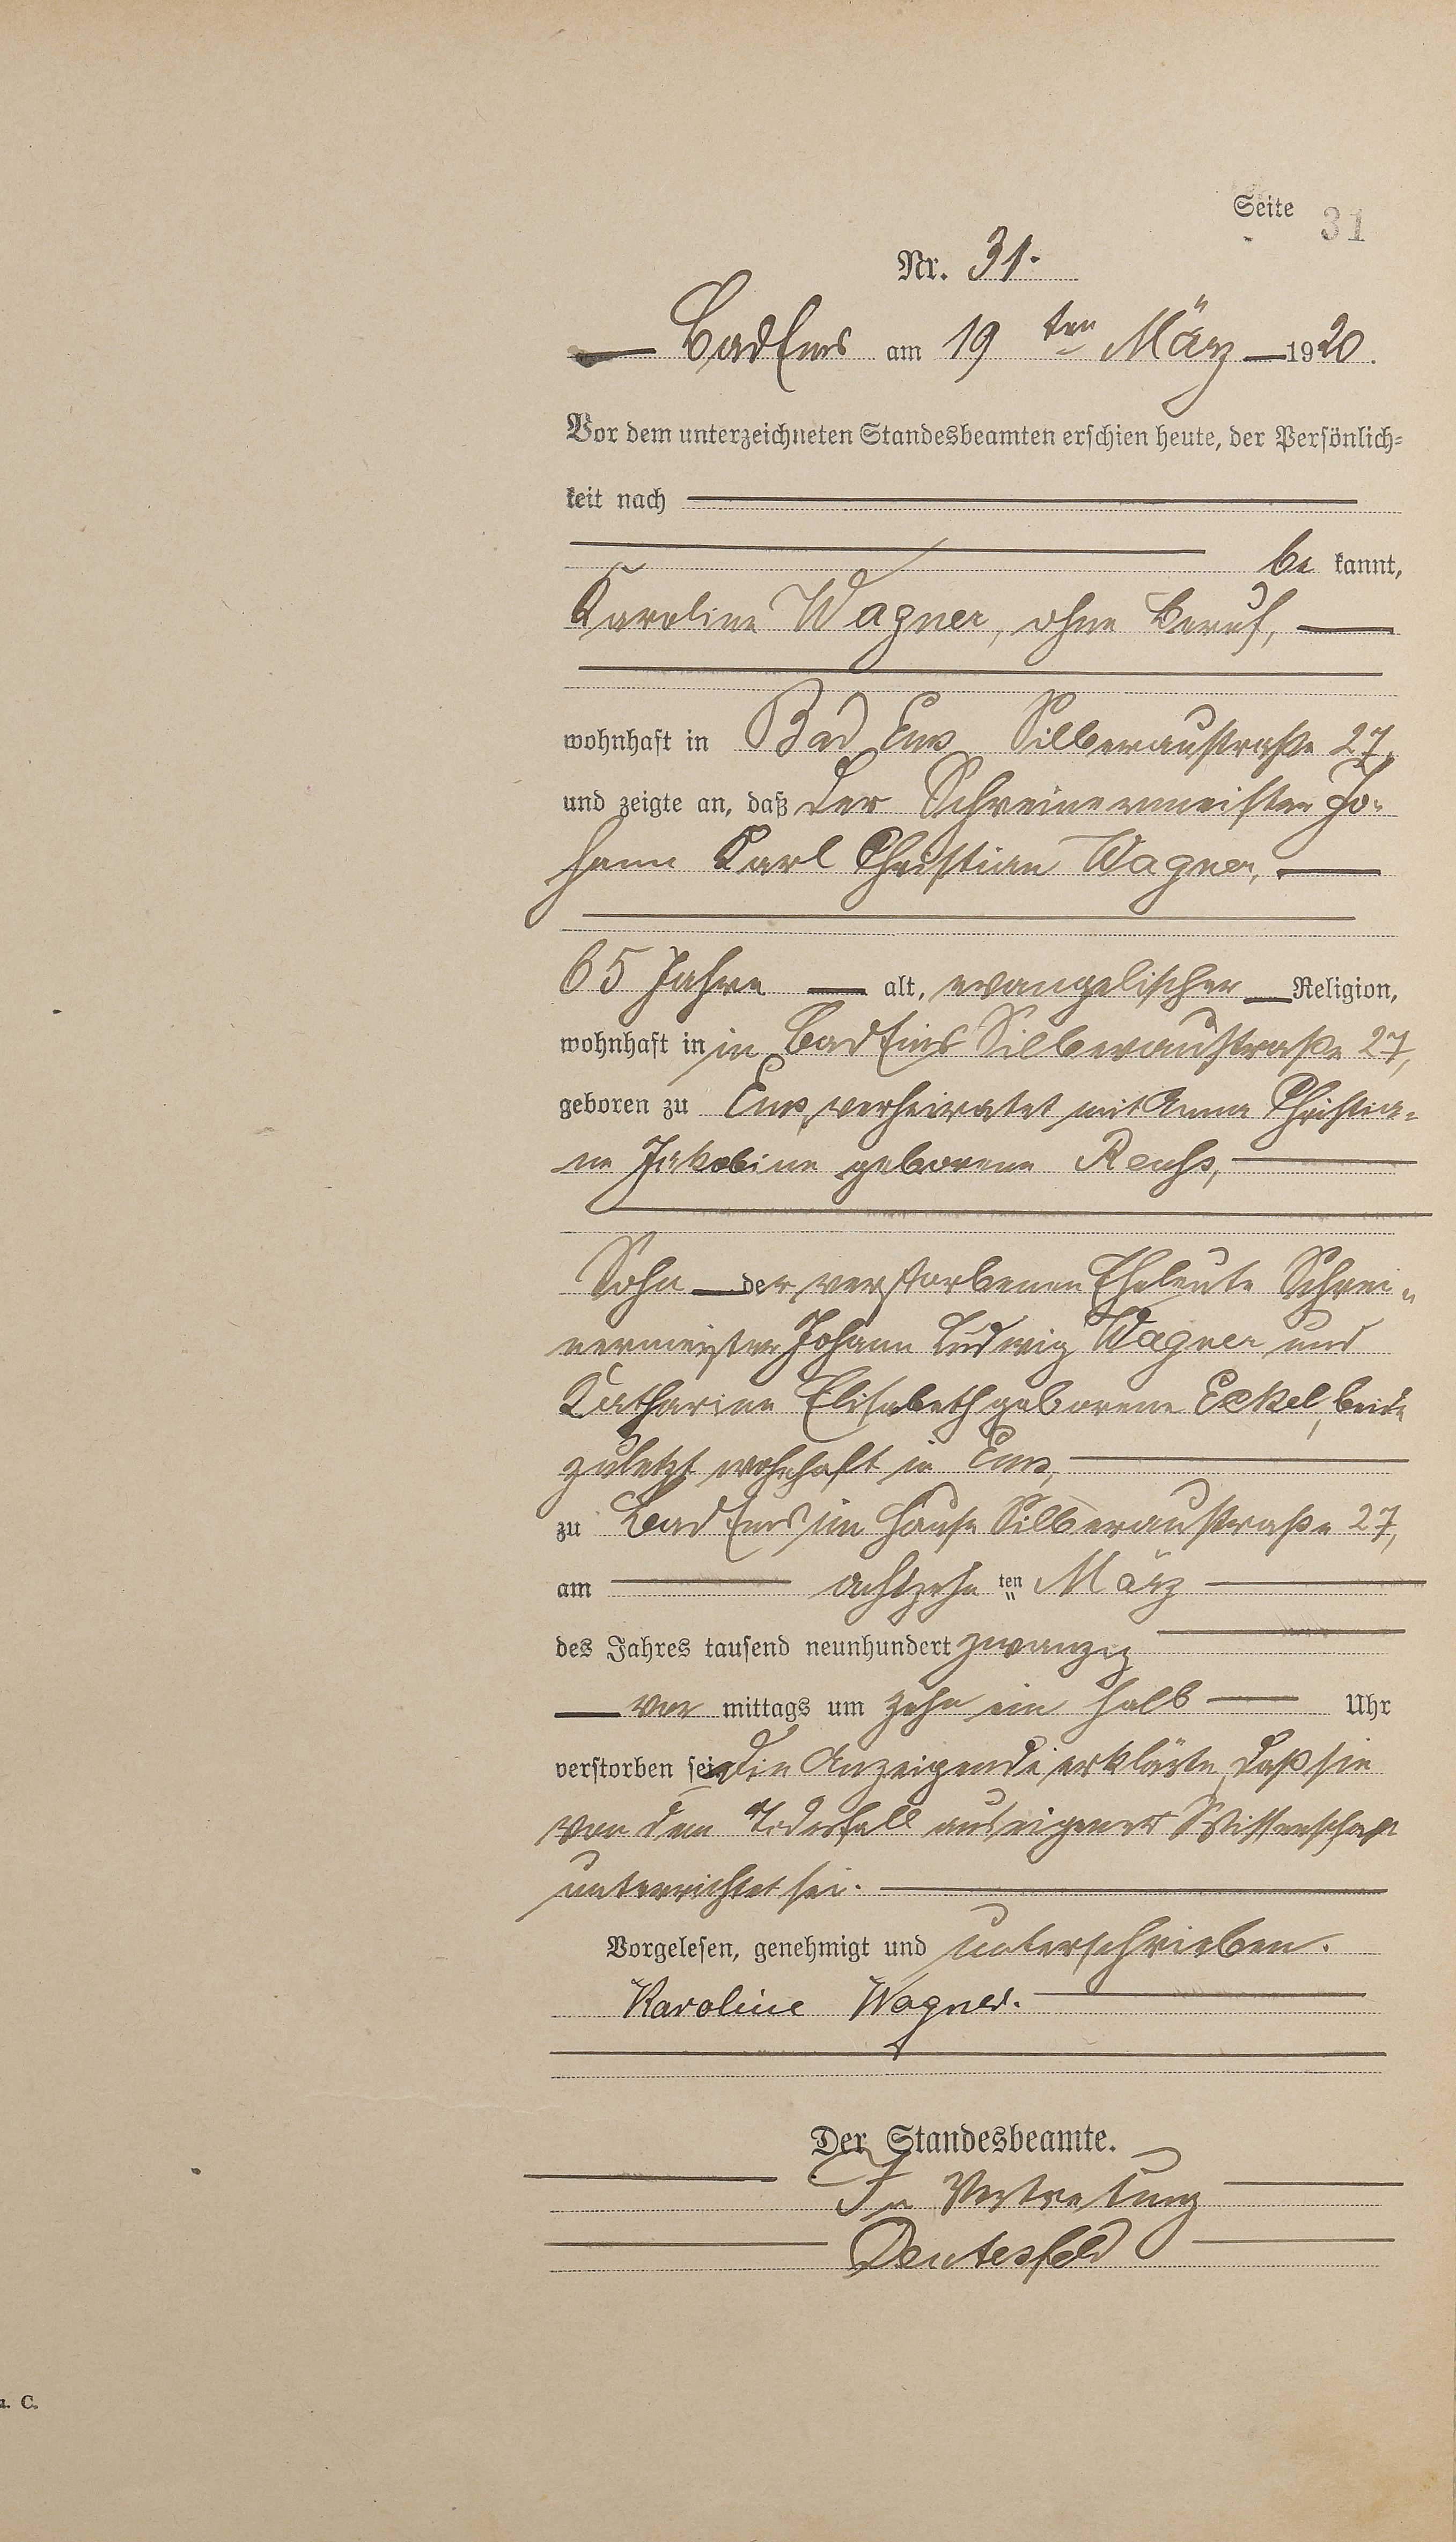 Seite 31
Nr. 31.
Bad Ems am 19ten März 1920.
Vor dem unterzeichneten Standesbeamten erschien heute, der Persönlich=
keit nach
be kannt,
Karoline Wagner, ohne Beruf,
wohnhaft in Bad Ems Silberaustraße 27,
und zeigte an, daß der Schreinermeister Jo-
hann Karl Christian Wagner,
65 Jahre alt, evangelischer Religion,
wohnhaft in in Bad Ems Silberaustraße 27,
geboren zu Ems, verheiratet mit Anna Christia-
ne Jakobine geborene
Sohn der verstorbenen Eheleute Schrei-
nermeister Johann Ludwig Wagner und
Katharine Elisabeth geborene Eckel, beide
zuletzt wohnhaft in Ems,
zu Bad Ems im Hause Silberaustraße 27,
am achtzehn ten März
des Jahres tausend neunhundert zwanzig
vor mittags um zehn ein halb Uhr
verstorben sei. Die Anzeigende erklärte, daß sie
von dem Todesfall aus eigener Wissenschaft
unterrichtet sei.
Vorgelesen, genehmigt und unterschrieben.
Karoline Wagner.
Der Standesbeamte.
In Vertretung
Deutesfeld
C.